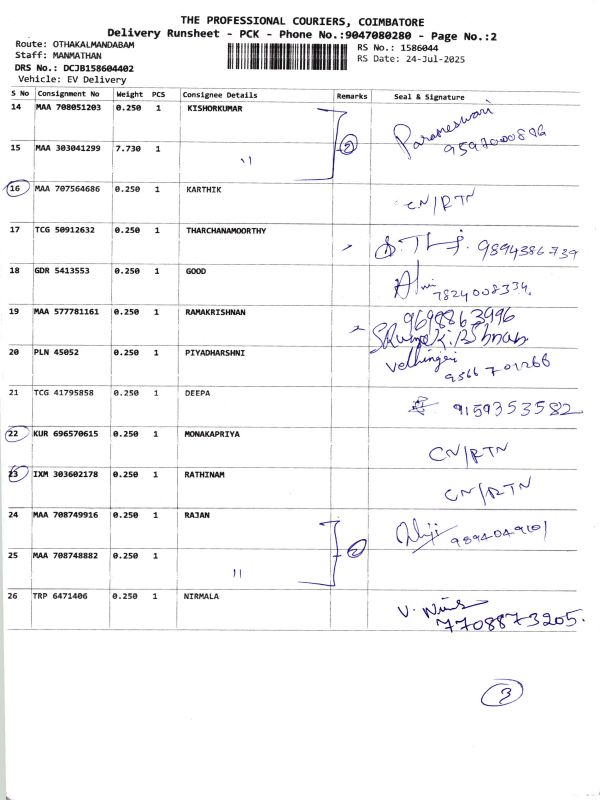 THE PROFESSIONAL COURIERS, COIMBATORE
Delivery Runsheet - PCK - Phone No.:9047080280 - Page No.:2
Route: OTHAKALMANDABAM
Staff: MANMATHAN
DRS No.: DCJB158604402
Vehicle: EV Delivery
RS No.: 1586044
RS Date: 24-Jul-2025
S No Consignment No Weight PCS Consignee Details Remarks Seal & Signature
14 MAA 708051203 0.250 1 KISHORKUMAR Parameswari
15 MAA 303041299 7.730 1 " 2
16 MAA 707564686 0.250 1 KARTHIK CN/RTN
17 TCG 50912632 0.250 1 THARCHANAMOORTHY 9894386739
18 GDR 5413553 0.250 1 GOOD 7824008334
19 MAA 577781161 0.250 1 RAMAKRISHNAN 9698863996
20 PLN 45052 0.250 1 PIYADHARSHNI
21 TCG 41795858 0.250 1 DEEPA 9159353582
22 KUR 696570615 0.250 1 MONAKAPRIYA CN/RTN
23 IXM 303602178 0.250 1 RATHINAM CN/RTN
24 MAA 708749916 0.250 1 RAJAN
25 MAA 708748882 0.250 1 " 2
26 TRP 6471406 0.250 1 NIRMALA 7708873205.
3